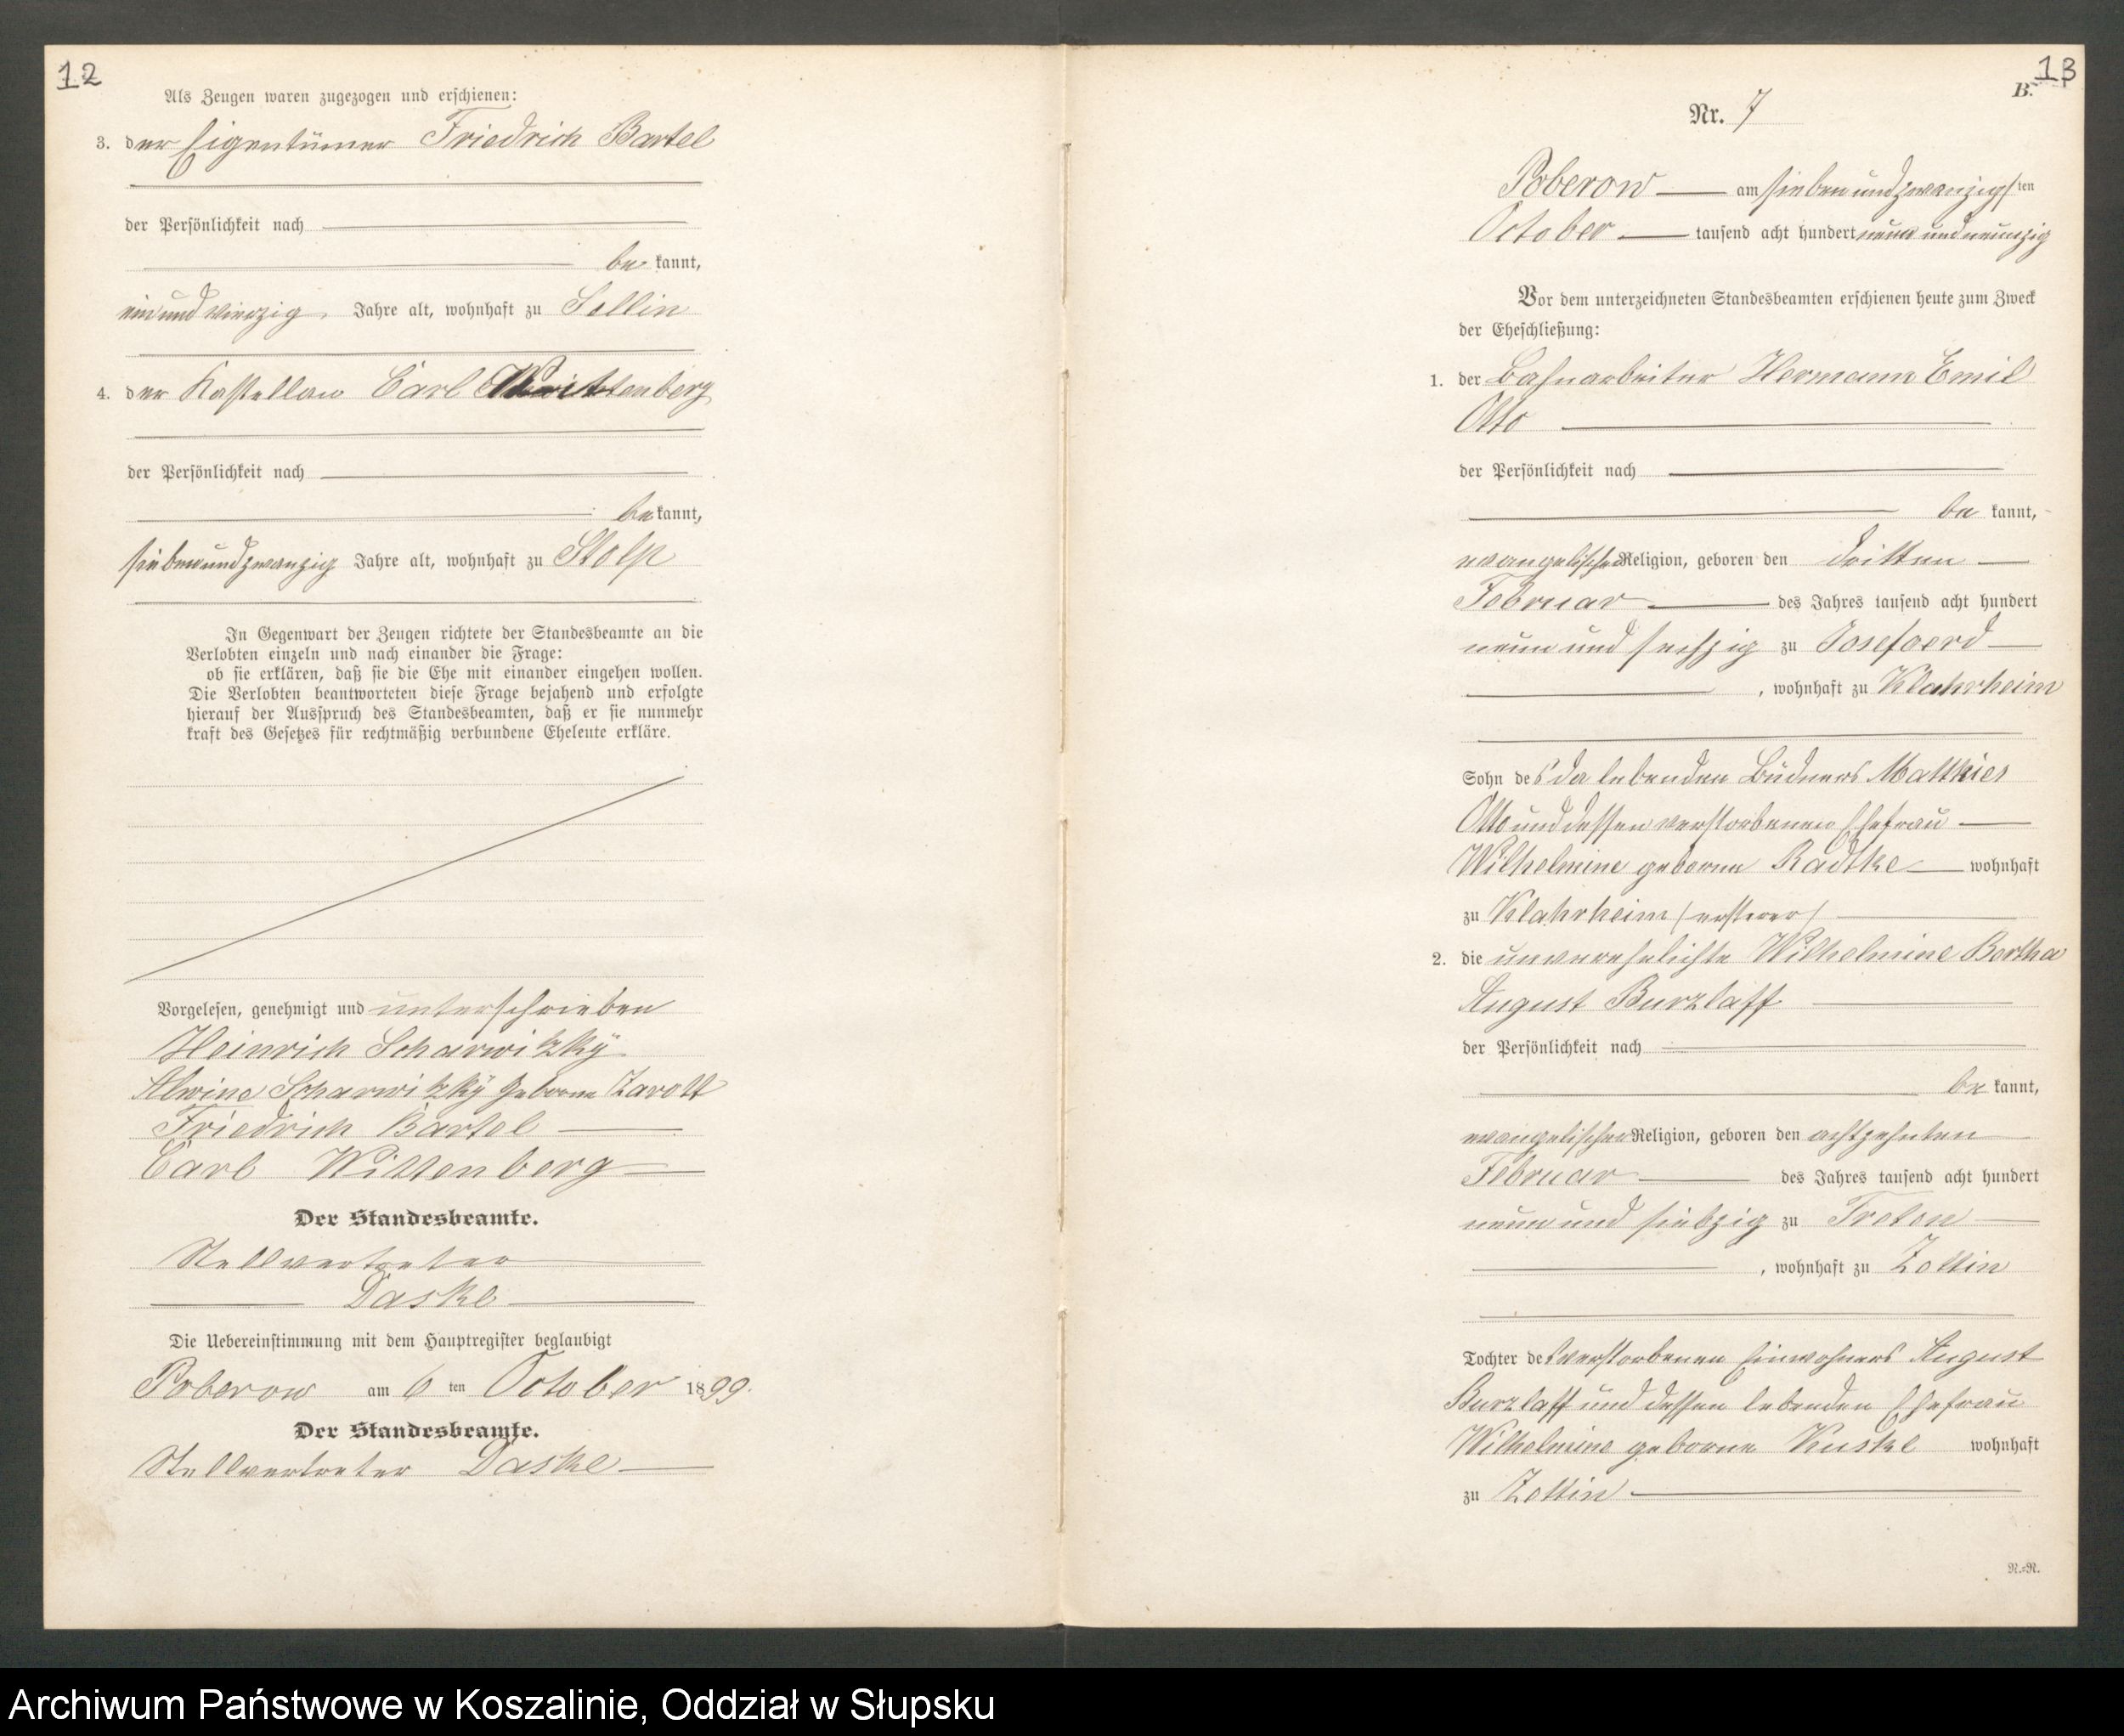 12
Als Zeugen waren zugezogen und erschienen:
3. der Eigentümer Friedrich Bartel
der Persönlichkeit nach
be kannt,
ein und vierzig, Jahre alt, wohnhaft zu Sellin
4. der Kastellan Carl Wittenberg
der Persönlichkeit nach
be kannt,
siebenundzwanzig Jahre alt, wohnhaft zu Stolp
In Gegenwart der Zeugen richtete der Standesbeamte an die
Verlobten einzeln und nach einander die Frage:
ob sie erklären, daß sie die Ehe mit einander eingehen wollen.
Die Verlobten beantworteten diese Frage bejahend und erfolgte
hierauf der Ausspruch des Standesbeamten, daß er sie nunmehr
kraft des Gesetzes für rechtmäßig verbundene Eheleute erkläre.
Vorgelesen, genehmigt und unterschrieben
Heinrich Scharwitzky
Alwine Scharwitzky geborne Zarott
Friedrich Bartel
Carl Wittenberg
Der Standesbeamte.
Stellvertreter
Daske
Die Uebereinstimmung mit dem Hauptregister beglaubigt
Poberow am 6 ten October 1899.
Der Standesbeamte.
Stellvertreter Daske
13
B.
Nr. 7
Poberow am siebenundzwanzigsten
October tausend acht hundert neun und neunzig
Vor dem unterzeichneten Standesbeamten erschienen heute zum Zweck
der Eheschließung:
1. der Bahnarbeiter Hermann Emil
Otto
der Persönlichkeit nach
be kannt,
evangelischer Religion, geboren den dritten
Februar des Jahres tausend acht hundert
neun und sechzig zu
, wohnhaft zu Klahrheim
Sohn des da lebenden Büdners Matthies
Otto und dessen verstorbenen Ehefrau
Wilhelmine geborne Radtke wohnhaft
zu Klahrheim (ersterer)
2. die unverehelichte Wilhelmine Bertha
August Burzlaff
der Persönlichkeit nach
be kannt,
evangelischer Religion, geboren den achtzehnten
Februar des Jahres tausend acht hundert
neun und siebzig zu Treten
, wohnhaft zu Zettin
Tochter des verstorbenen Einwohners August
Burzlaff und dessen lebenden Ehefrau
Wilhelmine geborne Kuske wohnhaft
zu Zettin
R.=R.
Archiwum Państwowe w Koszalinie, Oddział w Słupsku